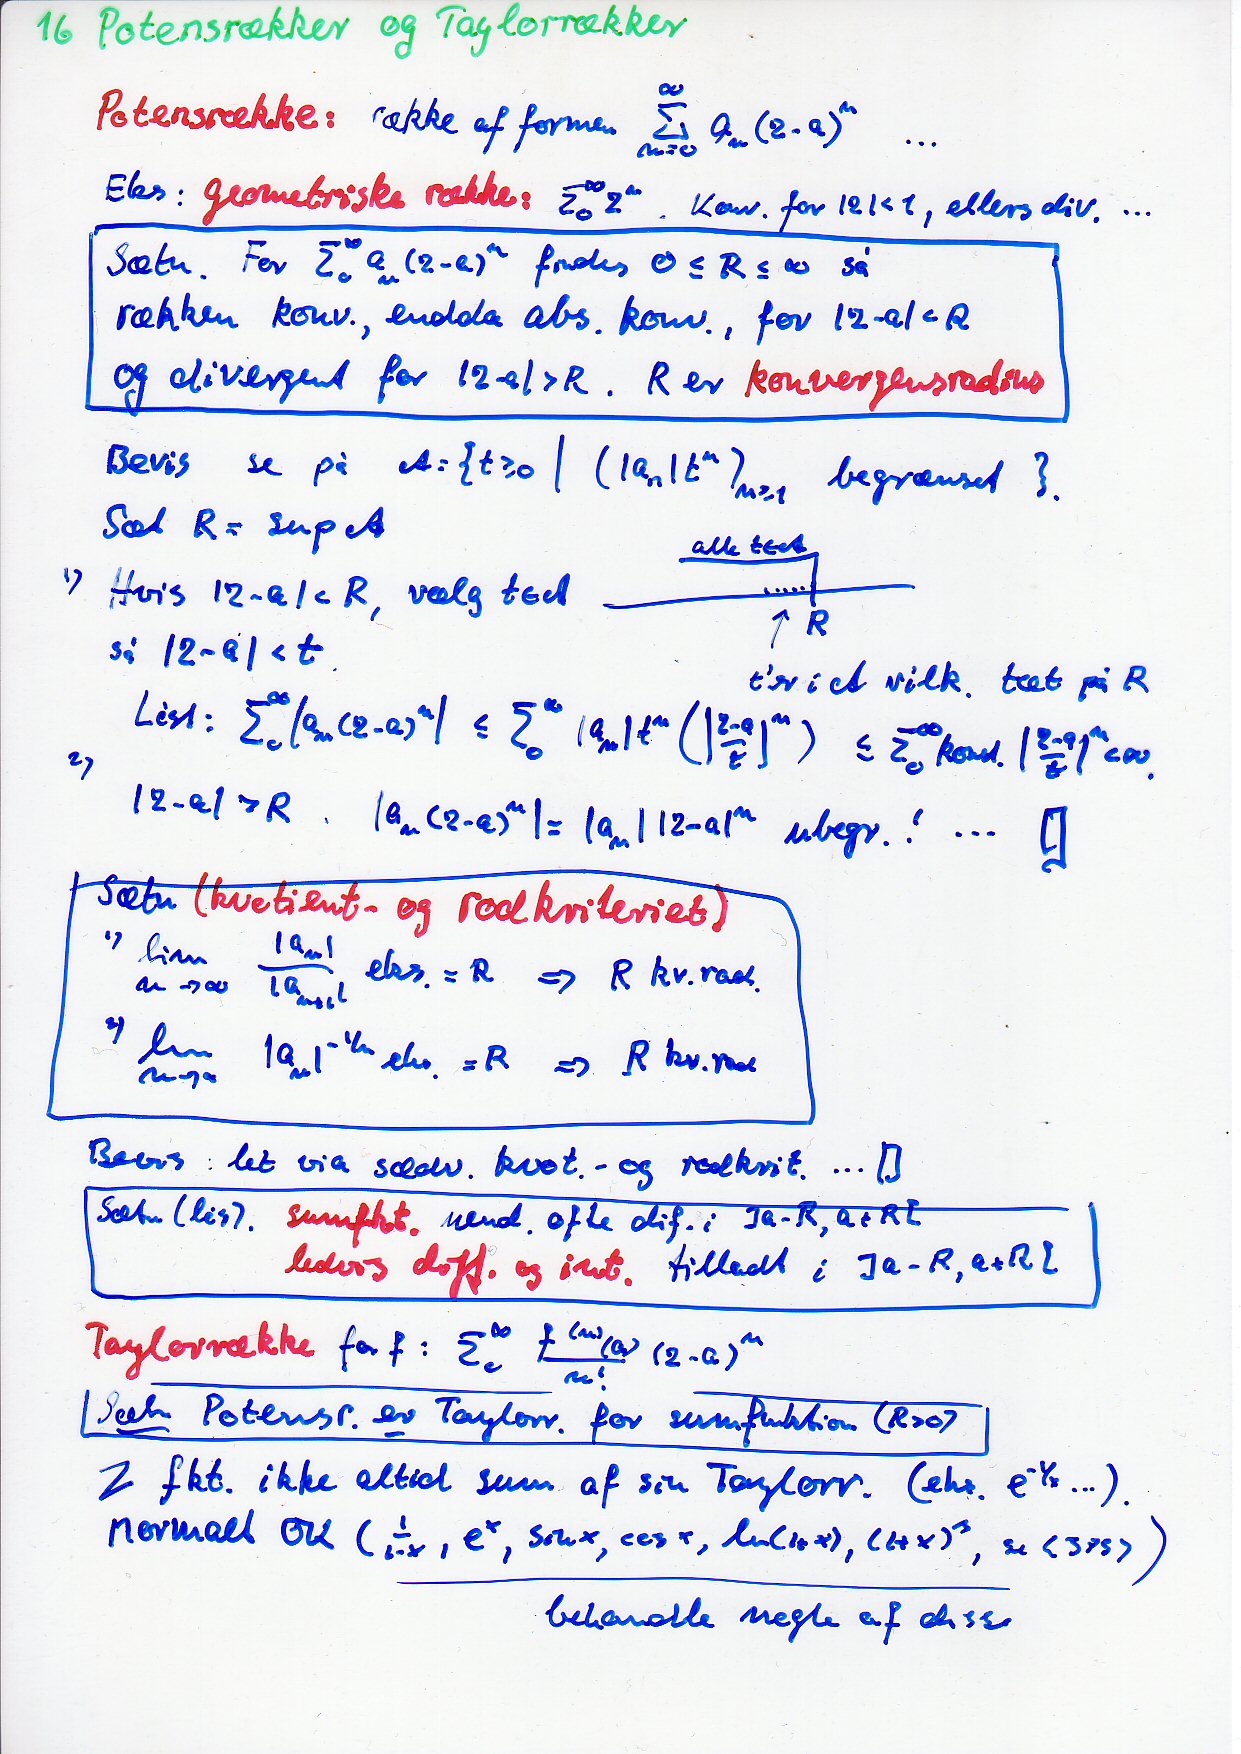 16 Potensrækker og Taylorrækker
Potensrække: række af formen ∑_{n=0}^∞ a_n (z-a)^n ...
Eks: geometriske række: ∑_0^∞ z^n. Konv. for |z|<1, ellers div. ...
Sætn. For ∑_0^∞ a_n (z-a)^n findes 0 ≤ R ≤ ∞ så
rækken konv., endda abs. konv., for |z-a|<R
og divergent for |z-a|>R. R er konvergensradius
Bevis se på A = {t≥0 | (|a_n|t^n)_{n≥1} begrænset }.
Sæt R = sup A
alle t∈A
1) Hvis |z-a|<R, vælg t∈A
R
så |z-a|<t.
t'er i A vilk. tæt på R
List: ∑_0^∞ |a_n(z-a)^n| ≤ ∑_0^∞ |a_n|t^n (|z-a/t|^n) ≤ ∑_0^∞ konst. |z-a/t|^n <∞.
2) |z-a|>R. |a_n(z-a)^n| = |a_n||z-a|^n ubegr.! ... []
Sætn (kvotient- og rodkriteriet)
1) lim_{n→∞} |a_n|/|a_{n+1}| eks. = R ⇒ R kv.rad.
2) lim_{n→∞} |a_n|^{-1/n} eks. = R ⇒ R kv.rad
Bevis: let via sædv. kvot.- og rodkrit. ... []
Sætn (lis). sumfkt. uend. ofte dif. i ]a-R, a+R[
ledvis diff. og int. tilladt i ]a-R, a+R[
Taylorrække for f: ∑_0^∞ f^{(n)}(a)/n! (z-a)^n
Sætn Potensr. er Taylorr. for sumfunktion (R>0)
Z fkt. ikke altid sum af sin Taylorr. (eks. e^{-1/x} ...).
normalt OK (1/1-x, e^x, sin x, cos x, ln(1+x), (1+x)^s, se <375>)
behandle nogle af disse